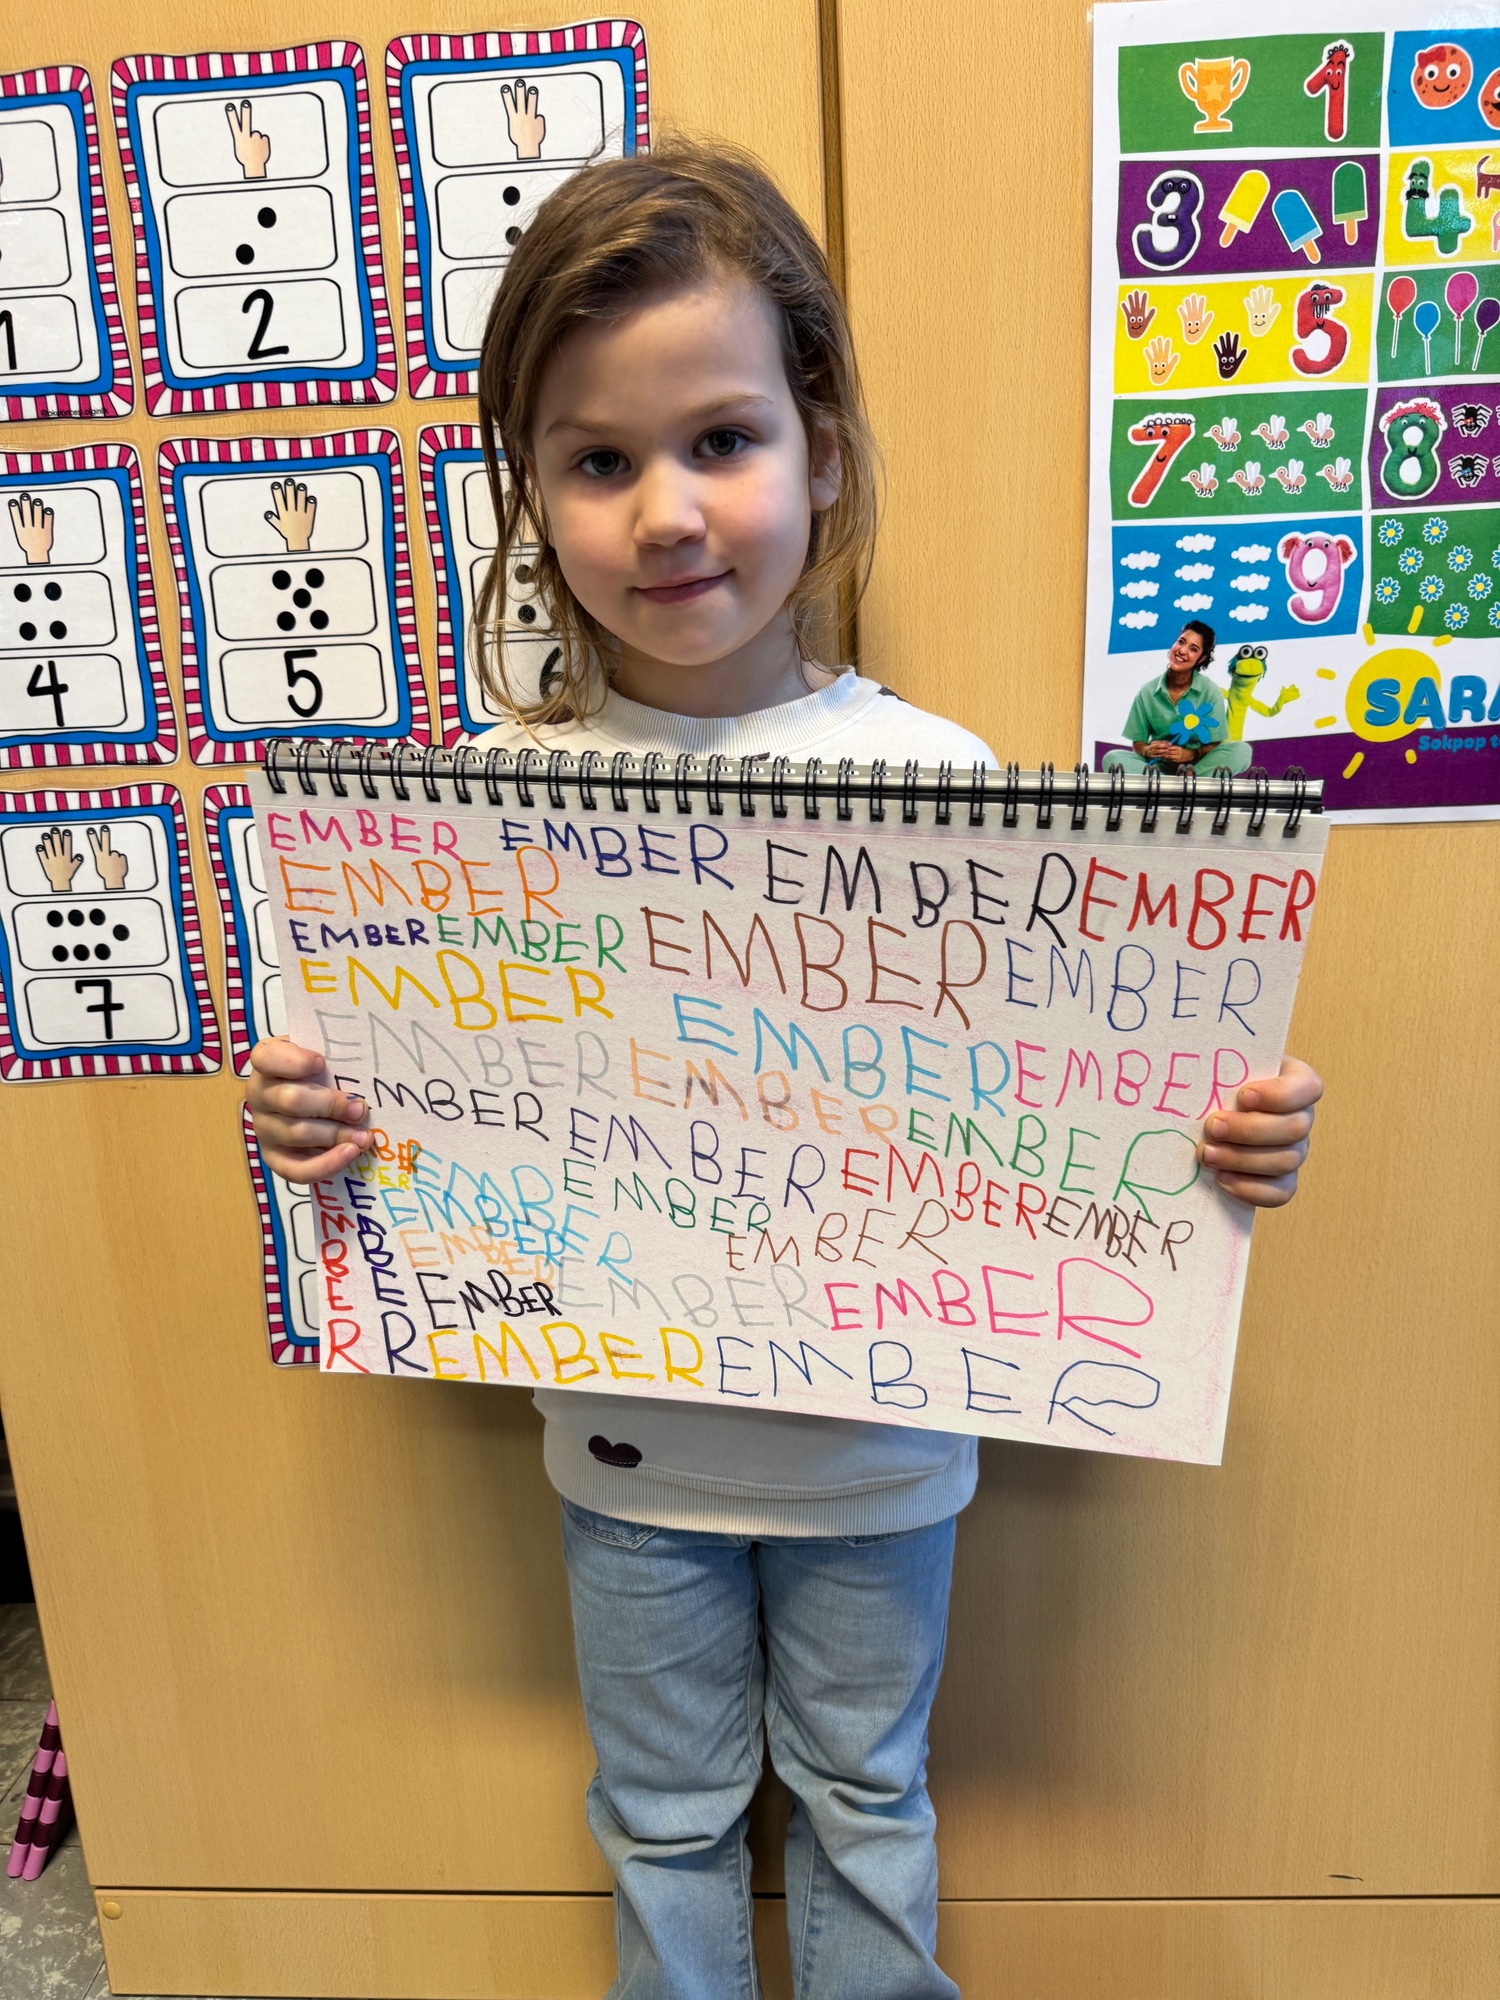 1
2
4
5
6
7
1
3
4
5
7
8
9
SARA
Sokpop
EMBER EMBER EMBER EMBER
EMBER
EMBER EMBER EMBER EMBER
EMBER EMBER EMBER
EMBER EMBER EMBER
EMBER EMBER EMBER EMBER
MBER
BER
EMBER EMBER EMBER
EMBER
EMBER
EMBER
EMBER
EMBER
EMBER
EMBER EMBER EMBER
EMBER EMBER